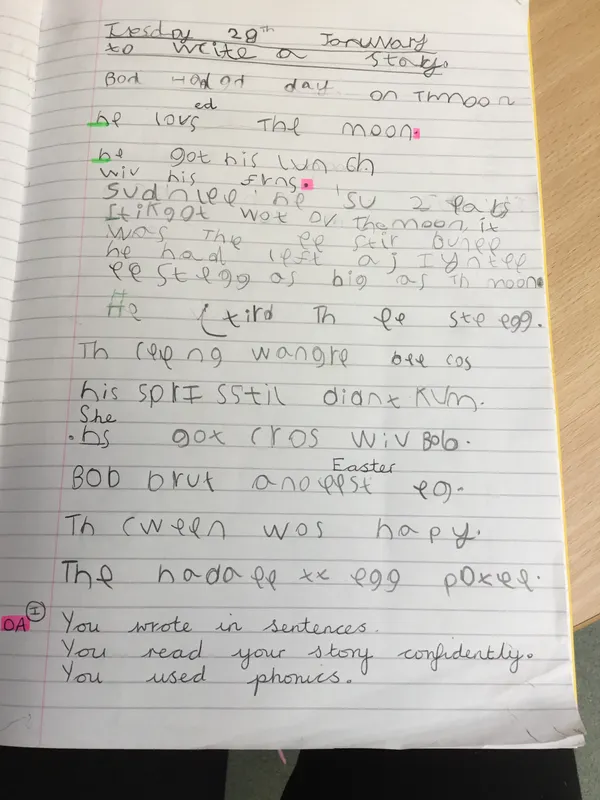 Tuesday 28th January
to write a story.
Bod Hadad day on Thmoon
ed
he lovs The moon.
he got his lunch
wiv his frns.
sudnlee he su 2 ears
Itikgot wot ov the moon it
was The ee stir bunee
he had left aj Iyntee
ee st egg as big as Th moon.
He tird Th ee ste egg.
Th ceeng wangre bee cos
his sprI SStil didnt Kum.
She
hs got cros wiv Bob.
Easter
BOb brut anoeest eg.
Th cween wos hapy.
The hadaee xx egg poxee.
OA I You wrote in sentences.
You read your story confidently.
You used phonics.